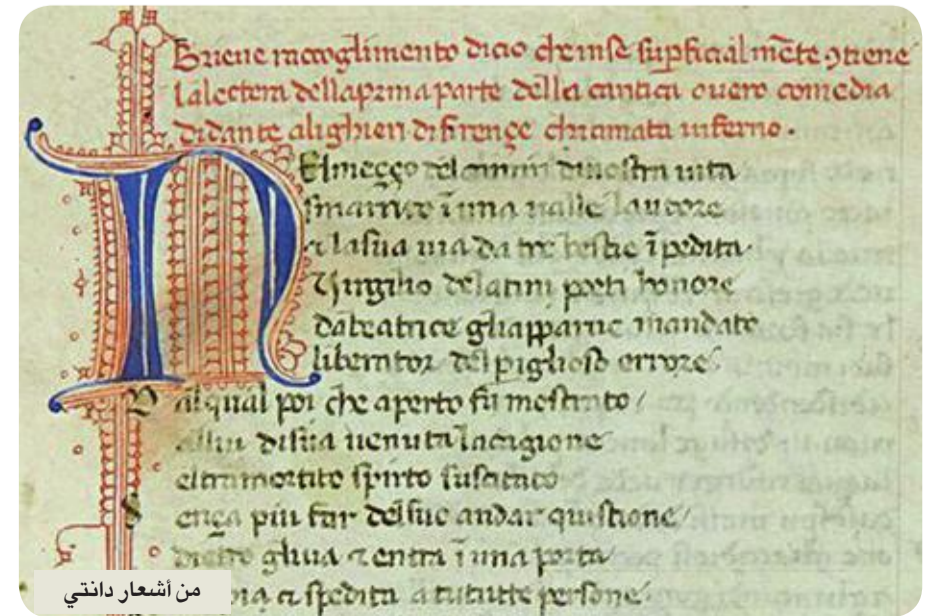 Brieue raccoglimento dicio che inse supficial mẽte ɔtiene
lalectera dellaprima parte della cantica ouero comedia
didante alighieri difirençe chiamata inferno.
Nelmeçço del camin dinostra uita
smarrito ĩ una ualle lautore
⁊ lasua uia da tre bestie ĩpedita
Virgilio delatini poeti honore
dabeatrice gliapparue mandato
liberator del piglioso errore
Dalqual poi che aperto fu mostrato
allui disua uenuta lacagione
eltramortito spirto suscitato
Sença piu far delsuo andar quistione
dietro gliua ⁊ entra ĩ una porta
⁊ spedita atutte persone
من أشعار دانتي